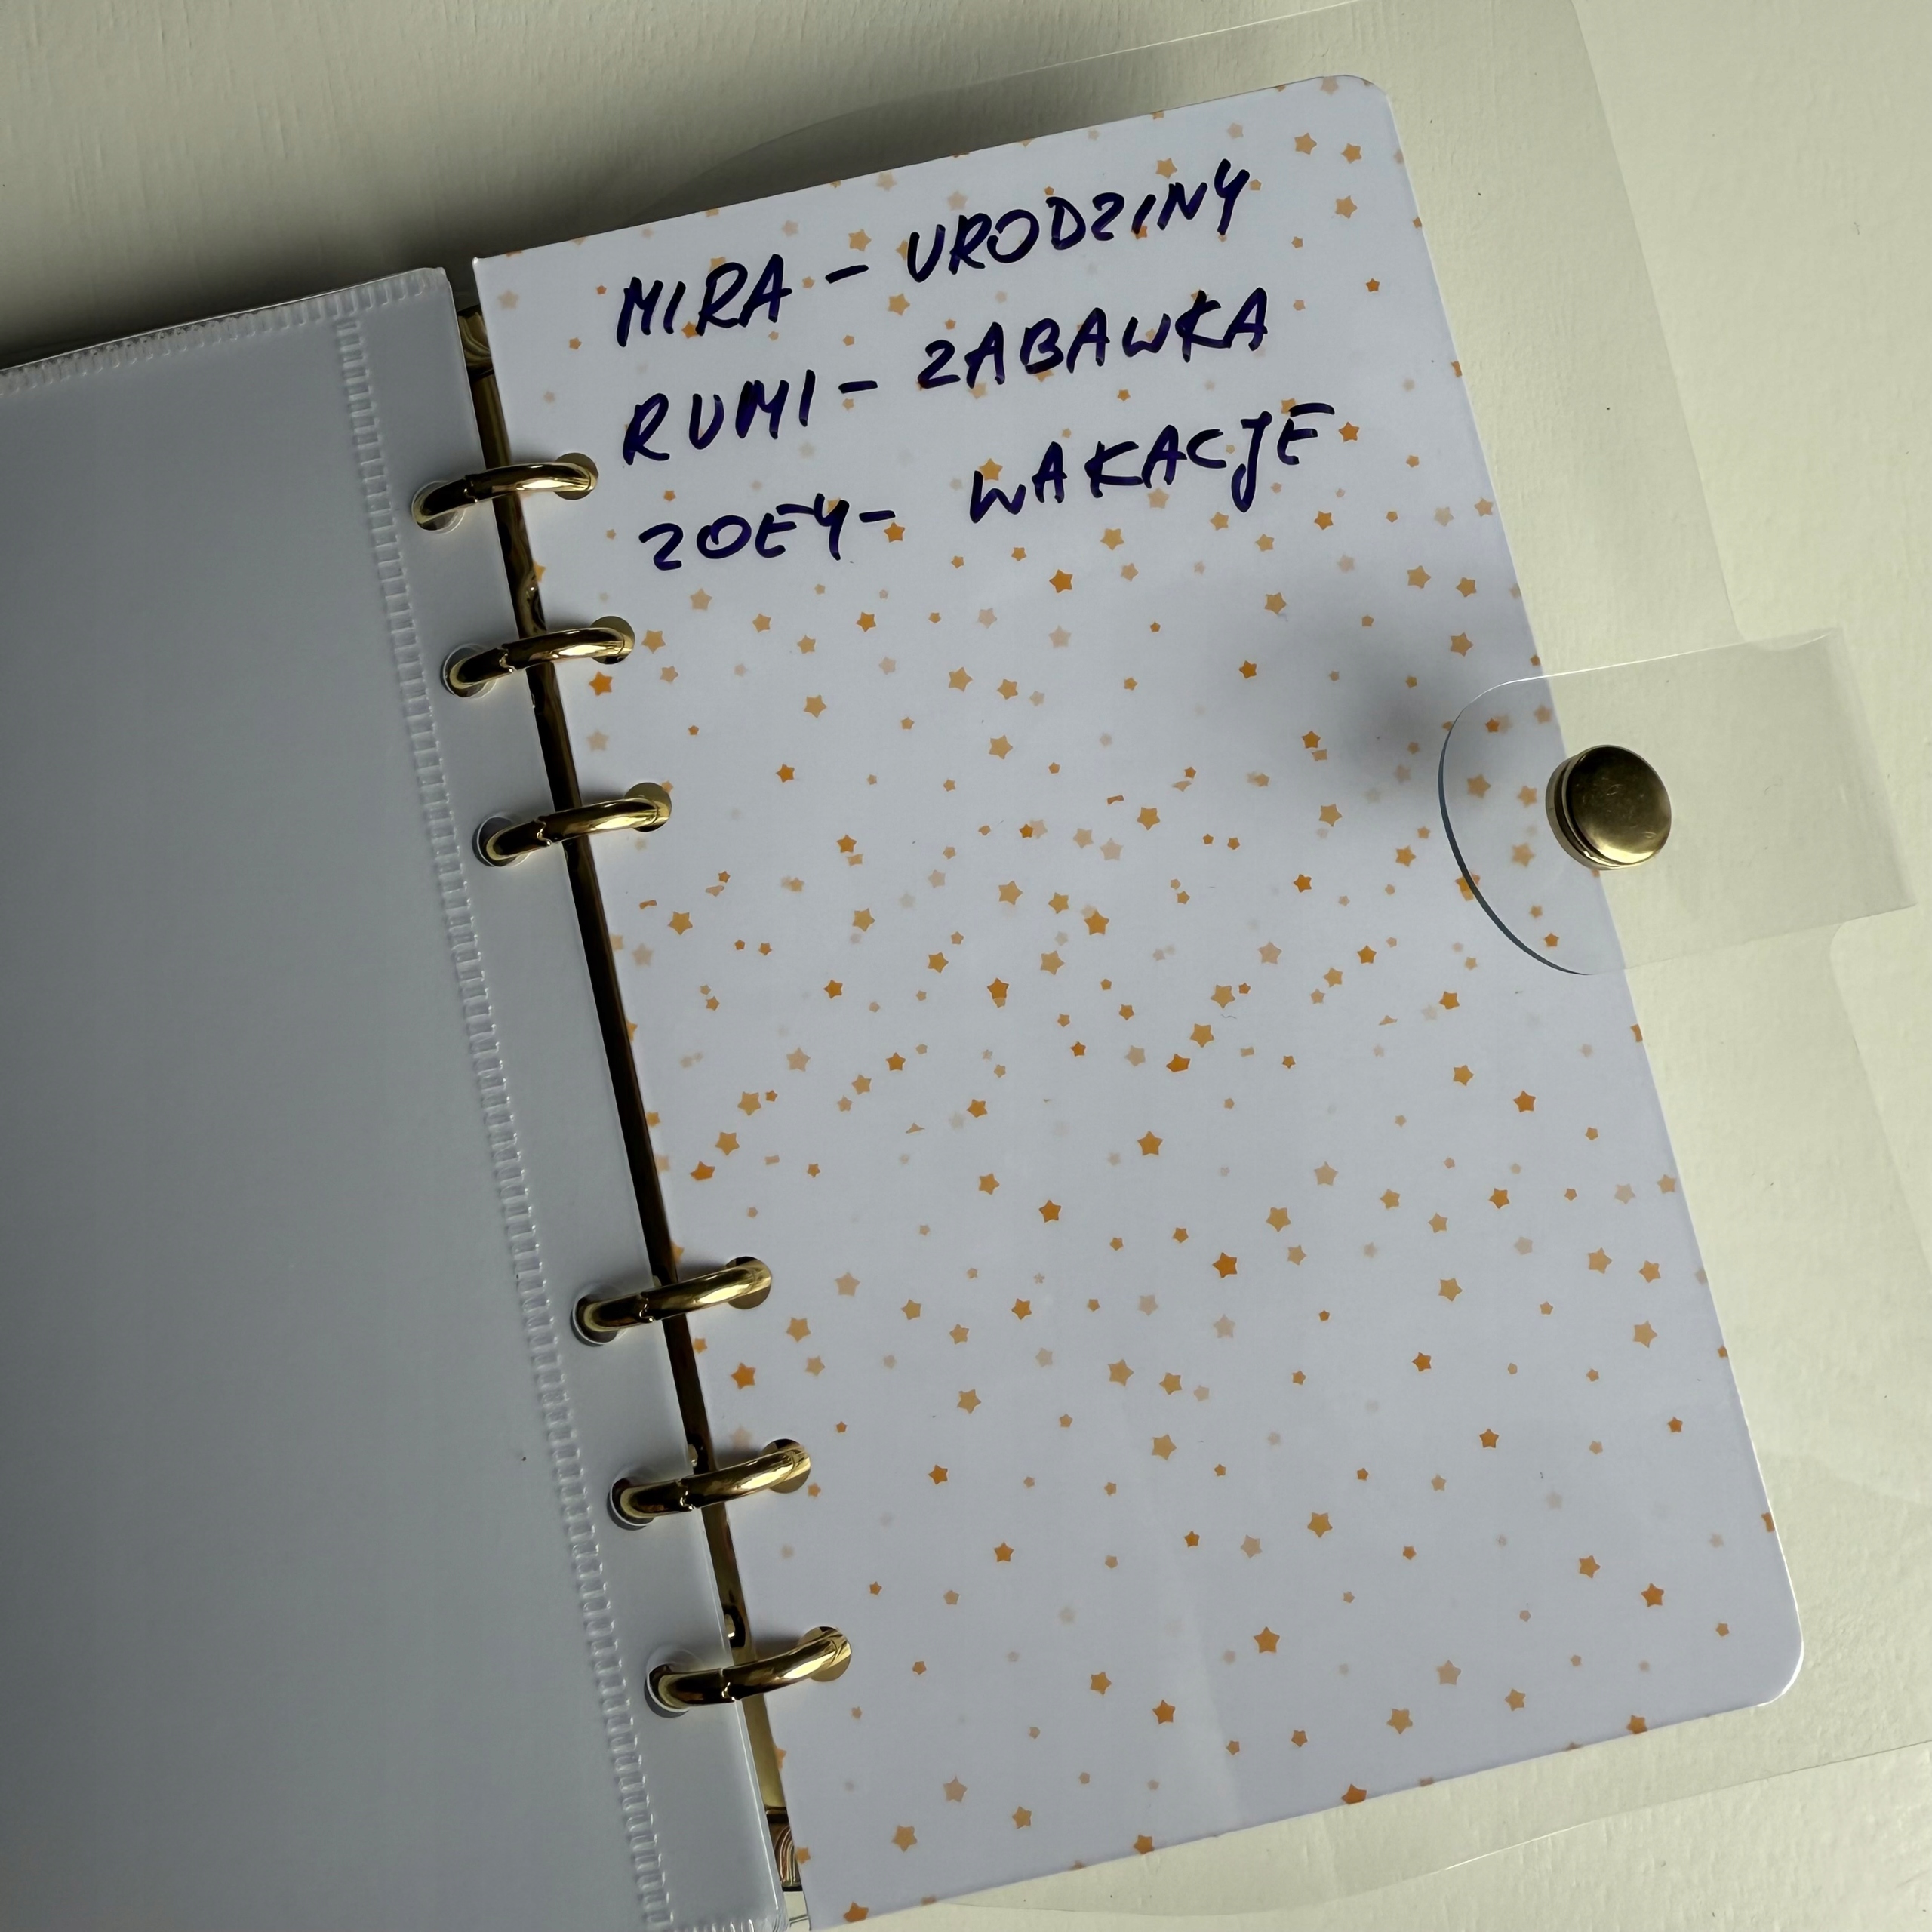 MIRA - URODZINY
RUMI - ZABAWKA
ZOEY - WAKACJE